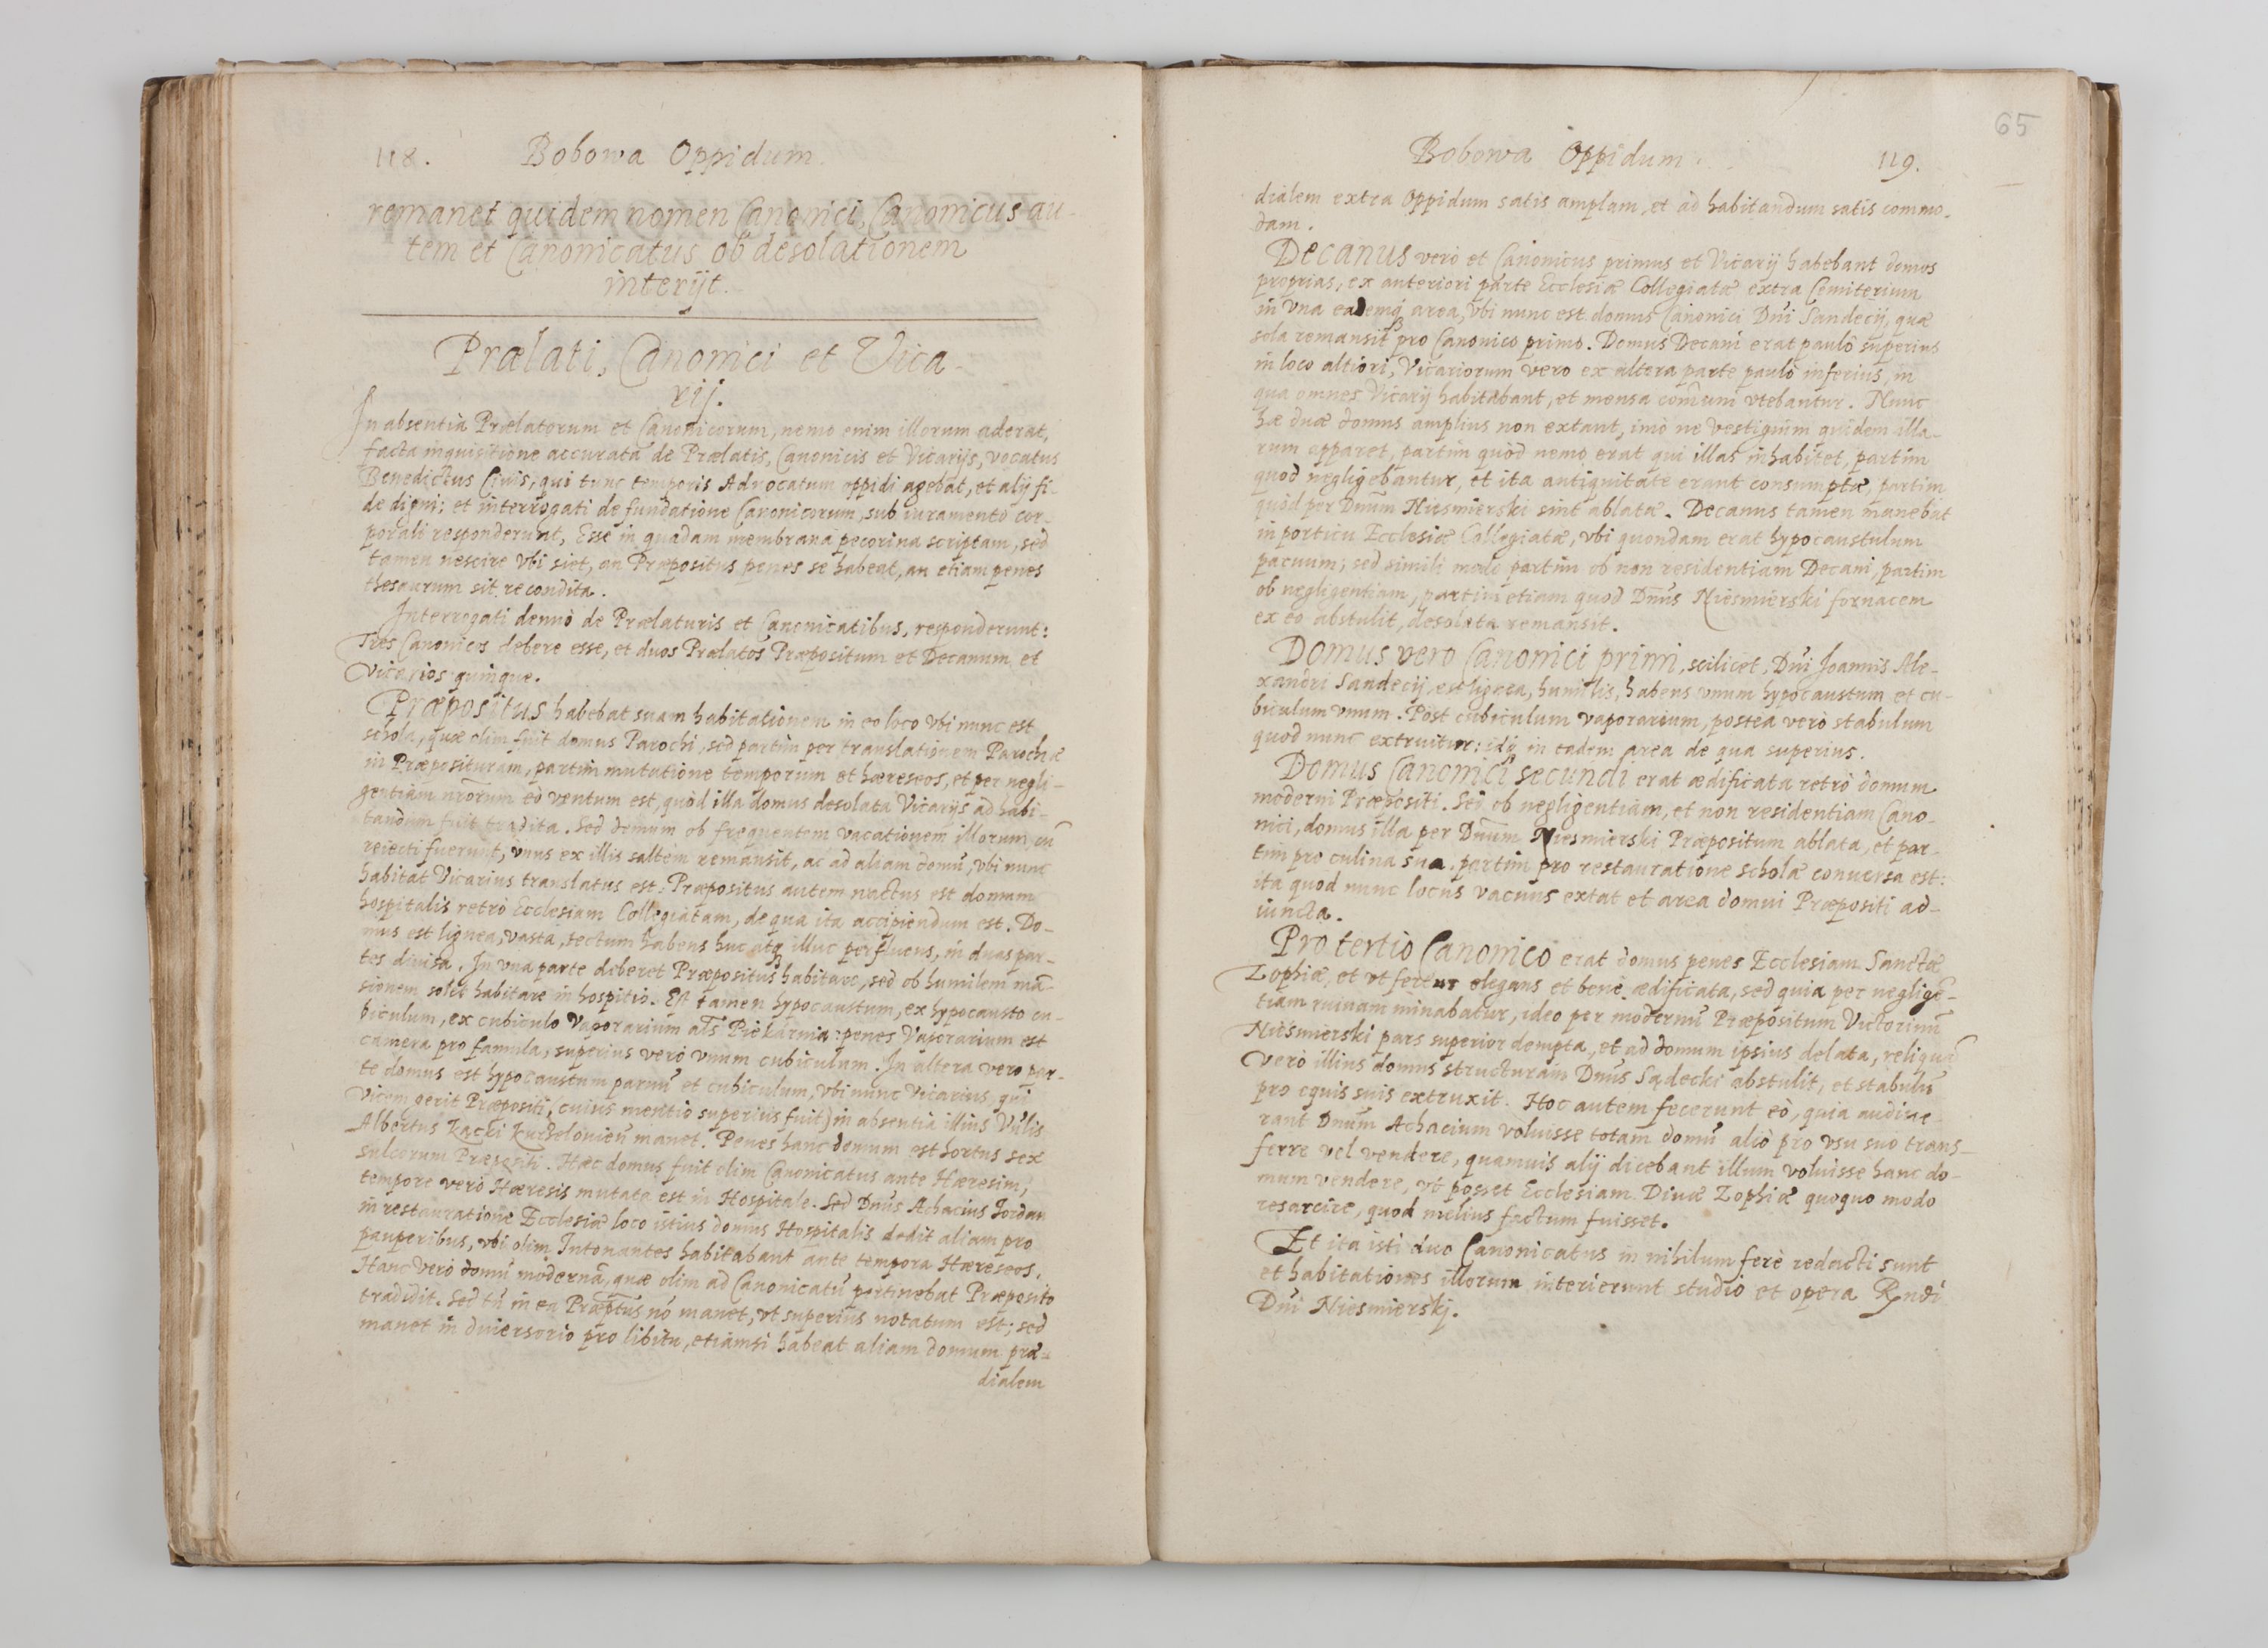 118. Bobowa Oppidum.
remanet quidem nomen Canonici, Canonicus au-
tem et Canonicatus ob desolationem
interijt.
Prælati, Canonici et Vica-
rij.
In absentia Prælatorum et Canonicorum, nemo enim illorum aderat,
facta inquisitione accurata de Prælatis, Canonicis et Vicarijs, vocatus
Benedictus Ciuis, qui tunc temporis Aduocatum oppidi agebat, et alij fi-
de digni; et interrogati de fundatione Canonicorum, sub iuramento cor-
porali responderunt, Esse in quadam membrana pecorina scriptam, sed
tamen nescire vbi siet, an Præpositus penes se habeat, an etiam penes
thesaurum sit recondita.
Interrogati denuò de Prælaturis et Canonicatibus, responderunt:
Tres Canonicos debere esse, et duos Prælatos Præpositum et Decanum et
Vicarios quinque.
Præpositus habebat suam habitationem in eo loco vbi nunc est
schola, quæ olim fuit domus Parochi, sed partim per translationem Parochiæ
in Præposituram, partim mutatione temporum et hæreseos, et per negli-
gentiam nrorum eò ventum est, quòd illa domus desolata Vicarijs ad habi-
tandum fuit tradita. Sed demum ob frequentem vacationem illorum cū
reiecti fuerunt, vnus ex illis saltem remansit, ac ad aliam domū, vbi nunc
habitat Vicarius translatus est: Præpositus autem nactus est domum
hospitalis retrò Ecclesiam Collegiatam, de qua ita accipiendum est. Do-
mus est lignea, vasta, tectum habens huc atq illuc perfluens, in duas par-
tes diuisa. In vna parte deberet Præpositus habitare, sed ob humilem mā-
sionem solet habitare in hospitio. Est tamen hypocaustum, ex hypocausto cu-
biculum, ex cubiculo Vaporarium als Piekarnia: penes Vaporarium est
camera pro famula, superius verò vnum cubiculum. In altera vero par-
te domus est hypocaustum paruū et cubiculum, vbi nunc Vicarius, qui
vicem gerit Præpositi, (cuius mentio superius fuit) in absentia illius Vnlis
Albertus manet. Penes hanc domum est hortus sex
sulcorum Præpositi. Hæc domus fuit olim Canonicatus ante Hæresim,
tempore verò Hæresis mutata est in Hospitale. Sed Dnus Achacius Jordan
in restauratione Ecclesiæ loco istius domus Hospitalis dedit aliam pro
pauperibus, vbi olim Intonantes habitabant ante tempora Hæreseos.
Hanc verò domū modernā, quæ olim ad Canonicatū pertinebat Præposito
tradidit. Sed tū in ea Præptus nō manet, vt superius notatum est; sed
manet in diuersorio pro libitu, etiamsi habeat aliam domum præ-
dialem
65
Bobowa Oppidum. 119.
dialem extra Oppidum satis amplam, et ad habitandum satis commo-
dam.
Decanus verò et Canonicus primus et Vicarij habebant domos
proprias, ex anteriori parte Ecclesiæ Collegiatæ extra Cemiterium
in vna eademq area, vbi nunc est domus Canonici Dni Sandecij, quæ
sola remansit pro Canonico primo. Domus Decani erat paulò superius
in loco altiori, Vicariorum vero ex altera parte paulò inferius, in
qua omnes Vicarij habitabant, et mensa comuni vtebantur. Nunc
hæ duæ domus amplius non extant, imò ne vestigium quidem illa-
rum apparet, partim quòd nemo erat qui illas inhabitet, partim
quod negligebantur, et ita antiquitate erant consumptæ, partim
quòd per Dnum Niesmierski sint ablatæ. Decanus tamen manebat
in porticu Ecclesiæ Collegiatæ, vbi quondam erat hypocaustulum
paruum, sed simili modo partim ob non residentiam Decani, partim
ob negligentiam, partim etiam quod Dnus Niesmierski fornacem
ex eo abstulit, desolata remansit.
Domus vero Canonici primi, scilicet Dni Joannis Ale-
xandri Sandecij est lignea, humilis, habens vnum hypocaustum et cu-
biculum vnum. Post cubiculum vaporarium, postea verò stabulum
quod nunc extruitur: idq in eadem area de qua superius.
Domus Canonici secundi erat ædificata retrò domum
moderni Præpositi. Sed ob negligentiam, et non residentiam Cano-
nici, domus illa per Dnum Niesmierski Præpositum ablata, et par-
tim pro culina sua, partim pro restauratione scholæ conuersa est:
ita quod nunc locus vacuus extat et area domui Præpositi ad-
iuncta.
Pro tertio Canonico erat domus penes Ecclesiam Sanctæ
Zophiæ, et vt fertur elegans et benè ædificata, sed quia per negligē-
tiam ruinam minabatur, ideo per modernū Præpositum Victorinū
Niesmierski pars superior dempta, et ad domum ipsius delata, reliquā
verò illius domus structuram Dnus Sądecki abstulit, et stabulū
pro equis suis extruxit. Hoc autem fecerunt eò, quia audiue-
rant Dnum Achacium voluisse totam domū aliò pro vsu suo trans-
ferre vel vendere, quamuis alij dicebant illum voluisse hanc do-
mum vendere, vt posset Ecclesiam Diuæ Zophiæ quoquo modo
resarcire, quod melius factum fuisset.
Et ita isti duo Canonicatus in nihilum ferè redacti sunt
et habitationes illorum interierunt studio et opera Rndi
Dni Niesmierskj.